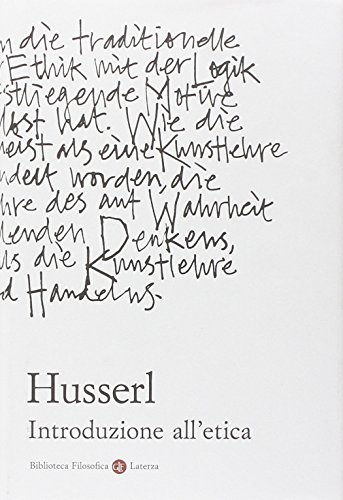 n die traditionelle
r Ethik mit der Logik
stliegende Motive
lost hat. Wie die
eist als eine Kunstlehre
ndelt worden, die
hre des auf Wahrheit
lenden Denkens,
ls die Kunstlehre
d Handelns.
Husserl
Introduzione all'etica
Biblioteca Filosofica Laterza